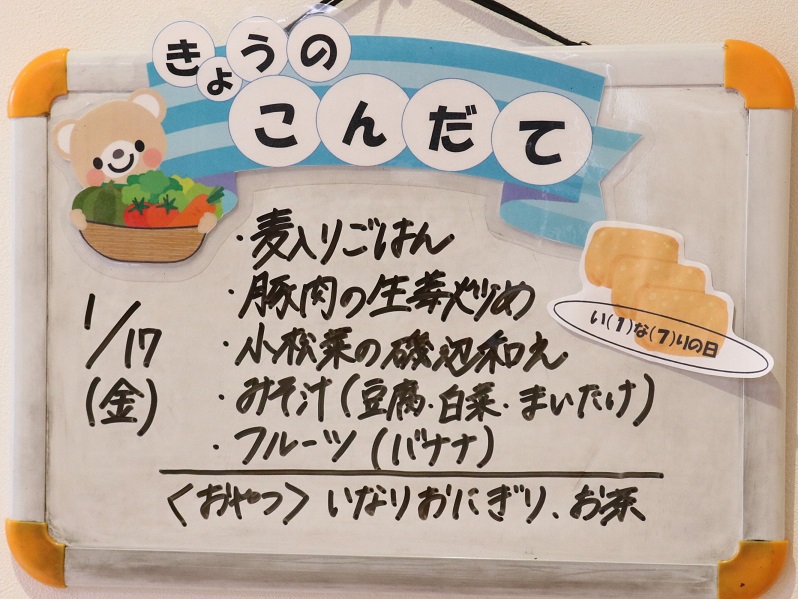 きょうの
こんだて
1/17
(金)
・麦入りごはん
・豚肉の生姜炒め
・小松菜の磯辺和え
・みそ汁(豆腐・白菜・まいたけ)
・フルーツ(バナナ)
〈おやつ〉いなりおにぎり、お茶
い(1)な(7)りの日